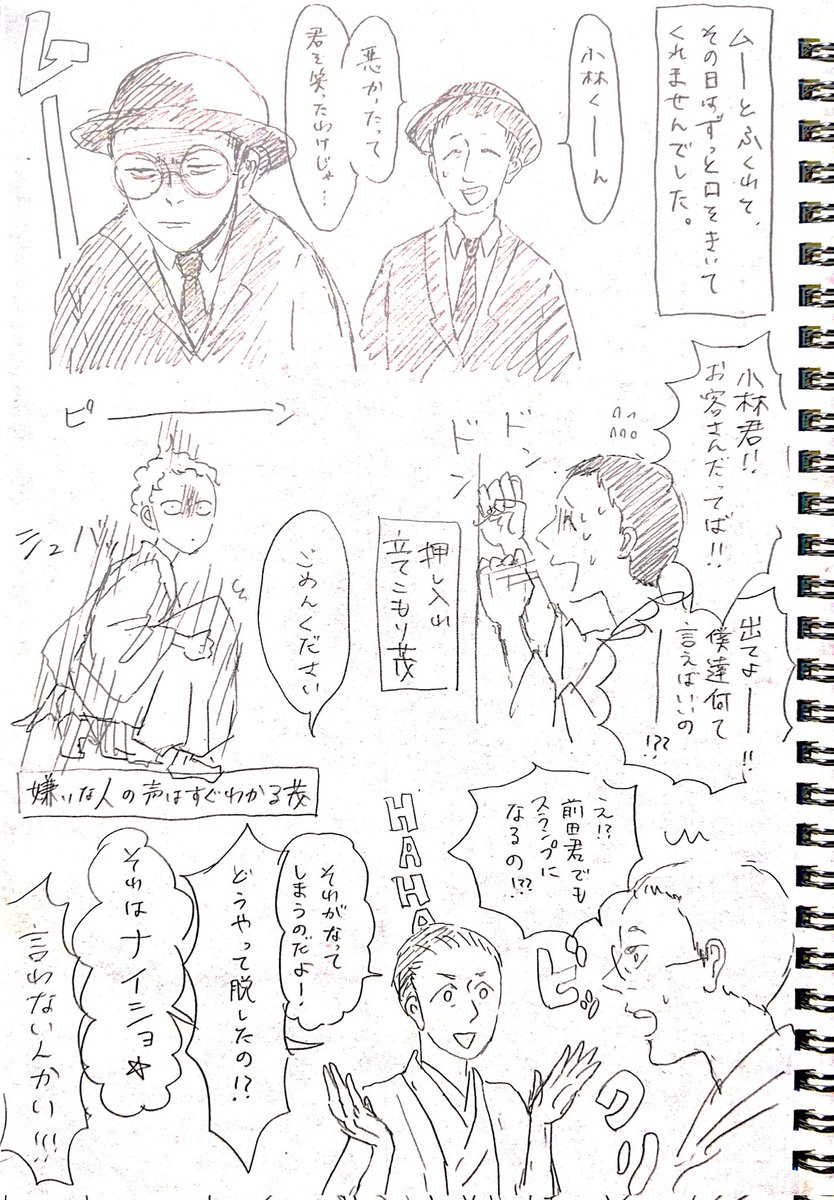 ムーとふくれて、
その日はずっと口をきいて
くれませんでした。
小林くーん
悪かったって
君を笑ったわけじゃ…
ムー
小林君!!
お客さんだってば!!
ドン
ドン
出てよー!!
僕達何て
言えばいいの
ー!??
押し入れ
立てこもり茂
ごめんください
ピーン
シュバッ
嫌いな人の声はすぐわかる茂
え!?
前田君でも
スランプに
なるの!??
ビックリ
HAHA
それがなって
しまうのだよー!
どうやって脱したの!?
それはナイショ☆
言わないんかい!!!